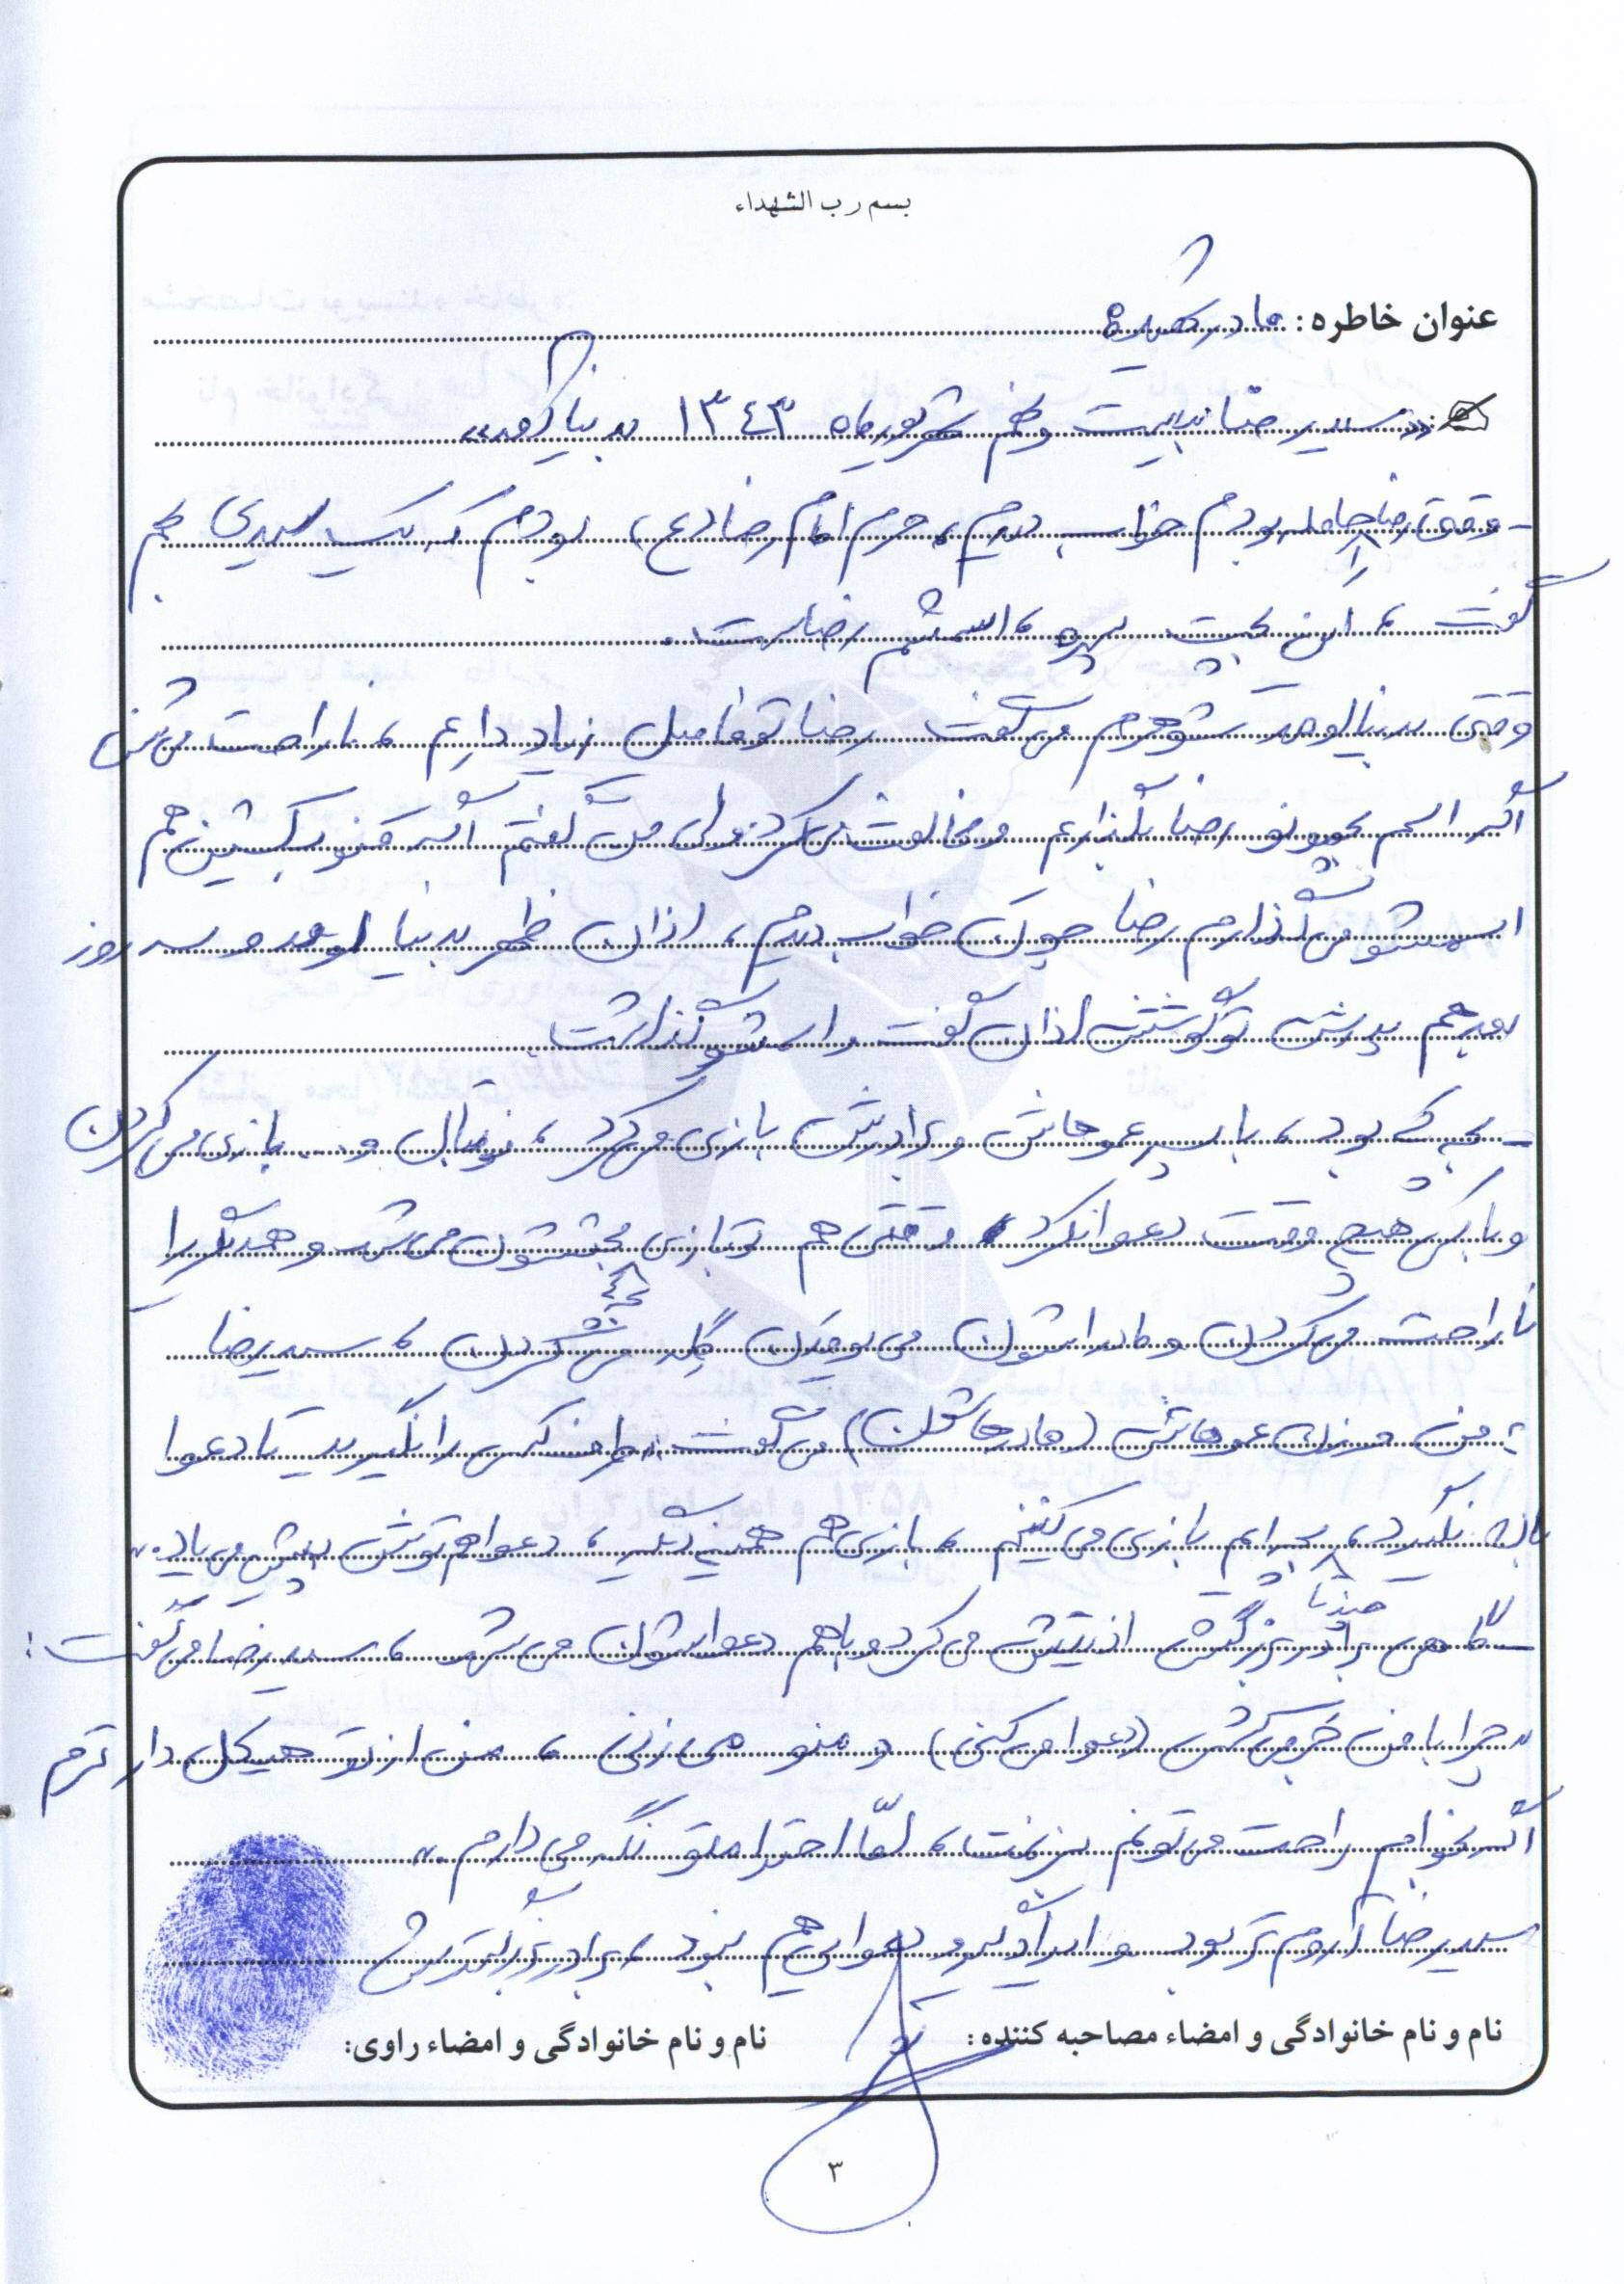 بسم رب الشهداء
عنوان خاطره: مادر شهید
«سیدرضا بیست و پنجم شهریورماه ۱۳۴۳ بدنیا اومد»
- وقتی رضا را حامله بودم خواب دیدم، حرم امام رضا (ع) بودم که یک سیدی بهم
گفت، این بچت پسره، اسمشم رضاست.
وقتی بدنیا اومد شوهرم می‌گفت رضا تو فامیل زیاد داریم، ناراحت می‌شن
اگر اسم بچه‌مونو رضا بگذاریم و مخالفت می‌کرد ولی من گفتم اگر منو بکشین هم
اسمشو می‌گذارم رضا چون خواب دیدم، اذان ظهر بدنیا اومد و سه روز
بعد هم پدرش تو گوشش اذان گفت و اسمشو گذاشت.
- بچه که بود، با پسرعموهاش و برادرش بازی می‌کرد، فوتبال و... بازی می‌کردن
و با کسی هیچ وقت دعوا نکرد، وقتی هم تو بازی بحثشون می‌شد و همدیگر را
ناراحت می‌کردن و مادراشون می‌یومدن گله می‌کردن، سیدرضا
به من و زن عموهاش (مادرهاشون) می‌گفت: «طرف کسی را نگیرید تا دعوا
بالا نگیرد، بچه‌ایم بازی می‌کنیم، بازی هم همینه دیگه، دعوا هم توش پیش می‌یاد.»
- گاهی برادر بزرگش اذیتش می‌کرد و با هم دعواشون می‌شد، سیدرضا می‌گفت:
«چرا با من می‌کشی (دعوا می‌کنی) و منو می‌زنی، من از تو هیکل دارترم
اگر بخوام راحت می‌تونم بزنمت، امّا احترامتو نگه می‌دارم.»
سیدرضا آروم‌تر بود و ایرادگیر و دعوایی هم نبود، برادر بزرگترش
نام و نام خانوادگی و امضاء مصاحبه کننده:
نام و نام خانوادگی و امضاء راوی:
۳